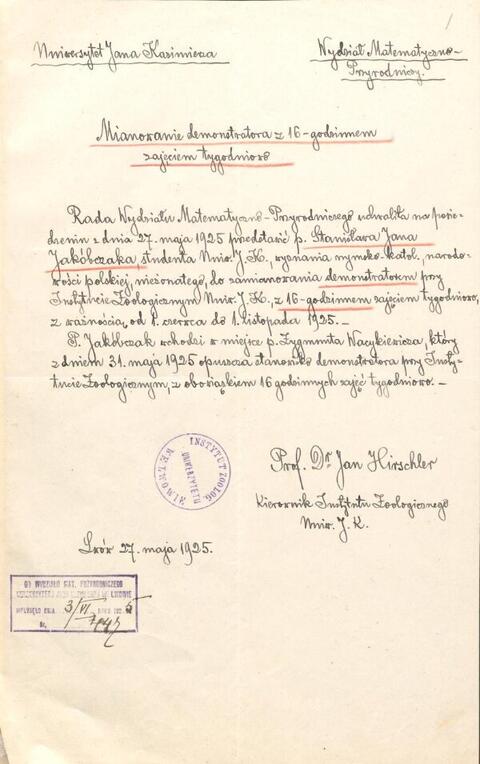 1
Uniwersytet Jana Kazimierza
Wydział Matematyczno-
Przyrodniczy.
Mianowanie demonstratora z 16-godzinnem
zajęciem tygodniowo
Rada Wydziału Matematyczno-Przyrodniczego uchwaliła na posie-
dzeniu z dnia 27. maja 1925 przedstawić p. Stanisława Jana
Jakóbczaka, studenta Uniw. J. K., wyznania rzymsko-katol., narodo-
wości polskiej, nieżonatego, do zamianowania demonstratorem przy
Instytucie Zoologicznym Uniw. J. K., z 16-godzinnem zajęciem tygodniowo,
z ważnością od 1. czerwca do 1. listopada 1925. —
P. Jakóbczak wchodzi w miejsce p. Zygmunta Wacykiewicza, który
z dniem 31. maja 1925 opuszcza stanowisko demonstratora przy Insty-
tucie Zoologicznym, z obowiązkiem 16 godzinnych zajęć tygodniowo. —
INSTYTUT ZOOLOG.
UNIWERSYTETU
WE LWOWIE
Prof. Dr Jan Hirschler
Kierownik Instytutu Zoologicznego
Uniw. J. K.
Lwów 27. maja 1925.
WYDZIAŁU MAT. PRZYRODNICZEGO
WE LWOWIE
WPŁYNĘŁO DNIA 3/VI ROKU 192 5
Nr.